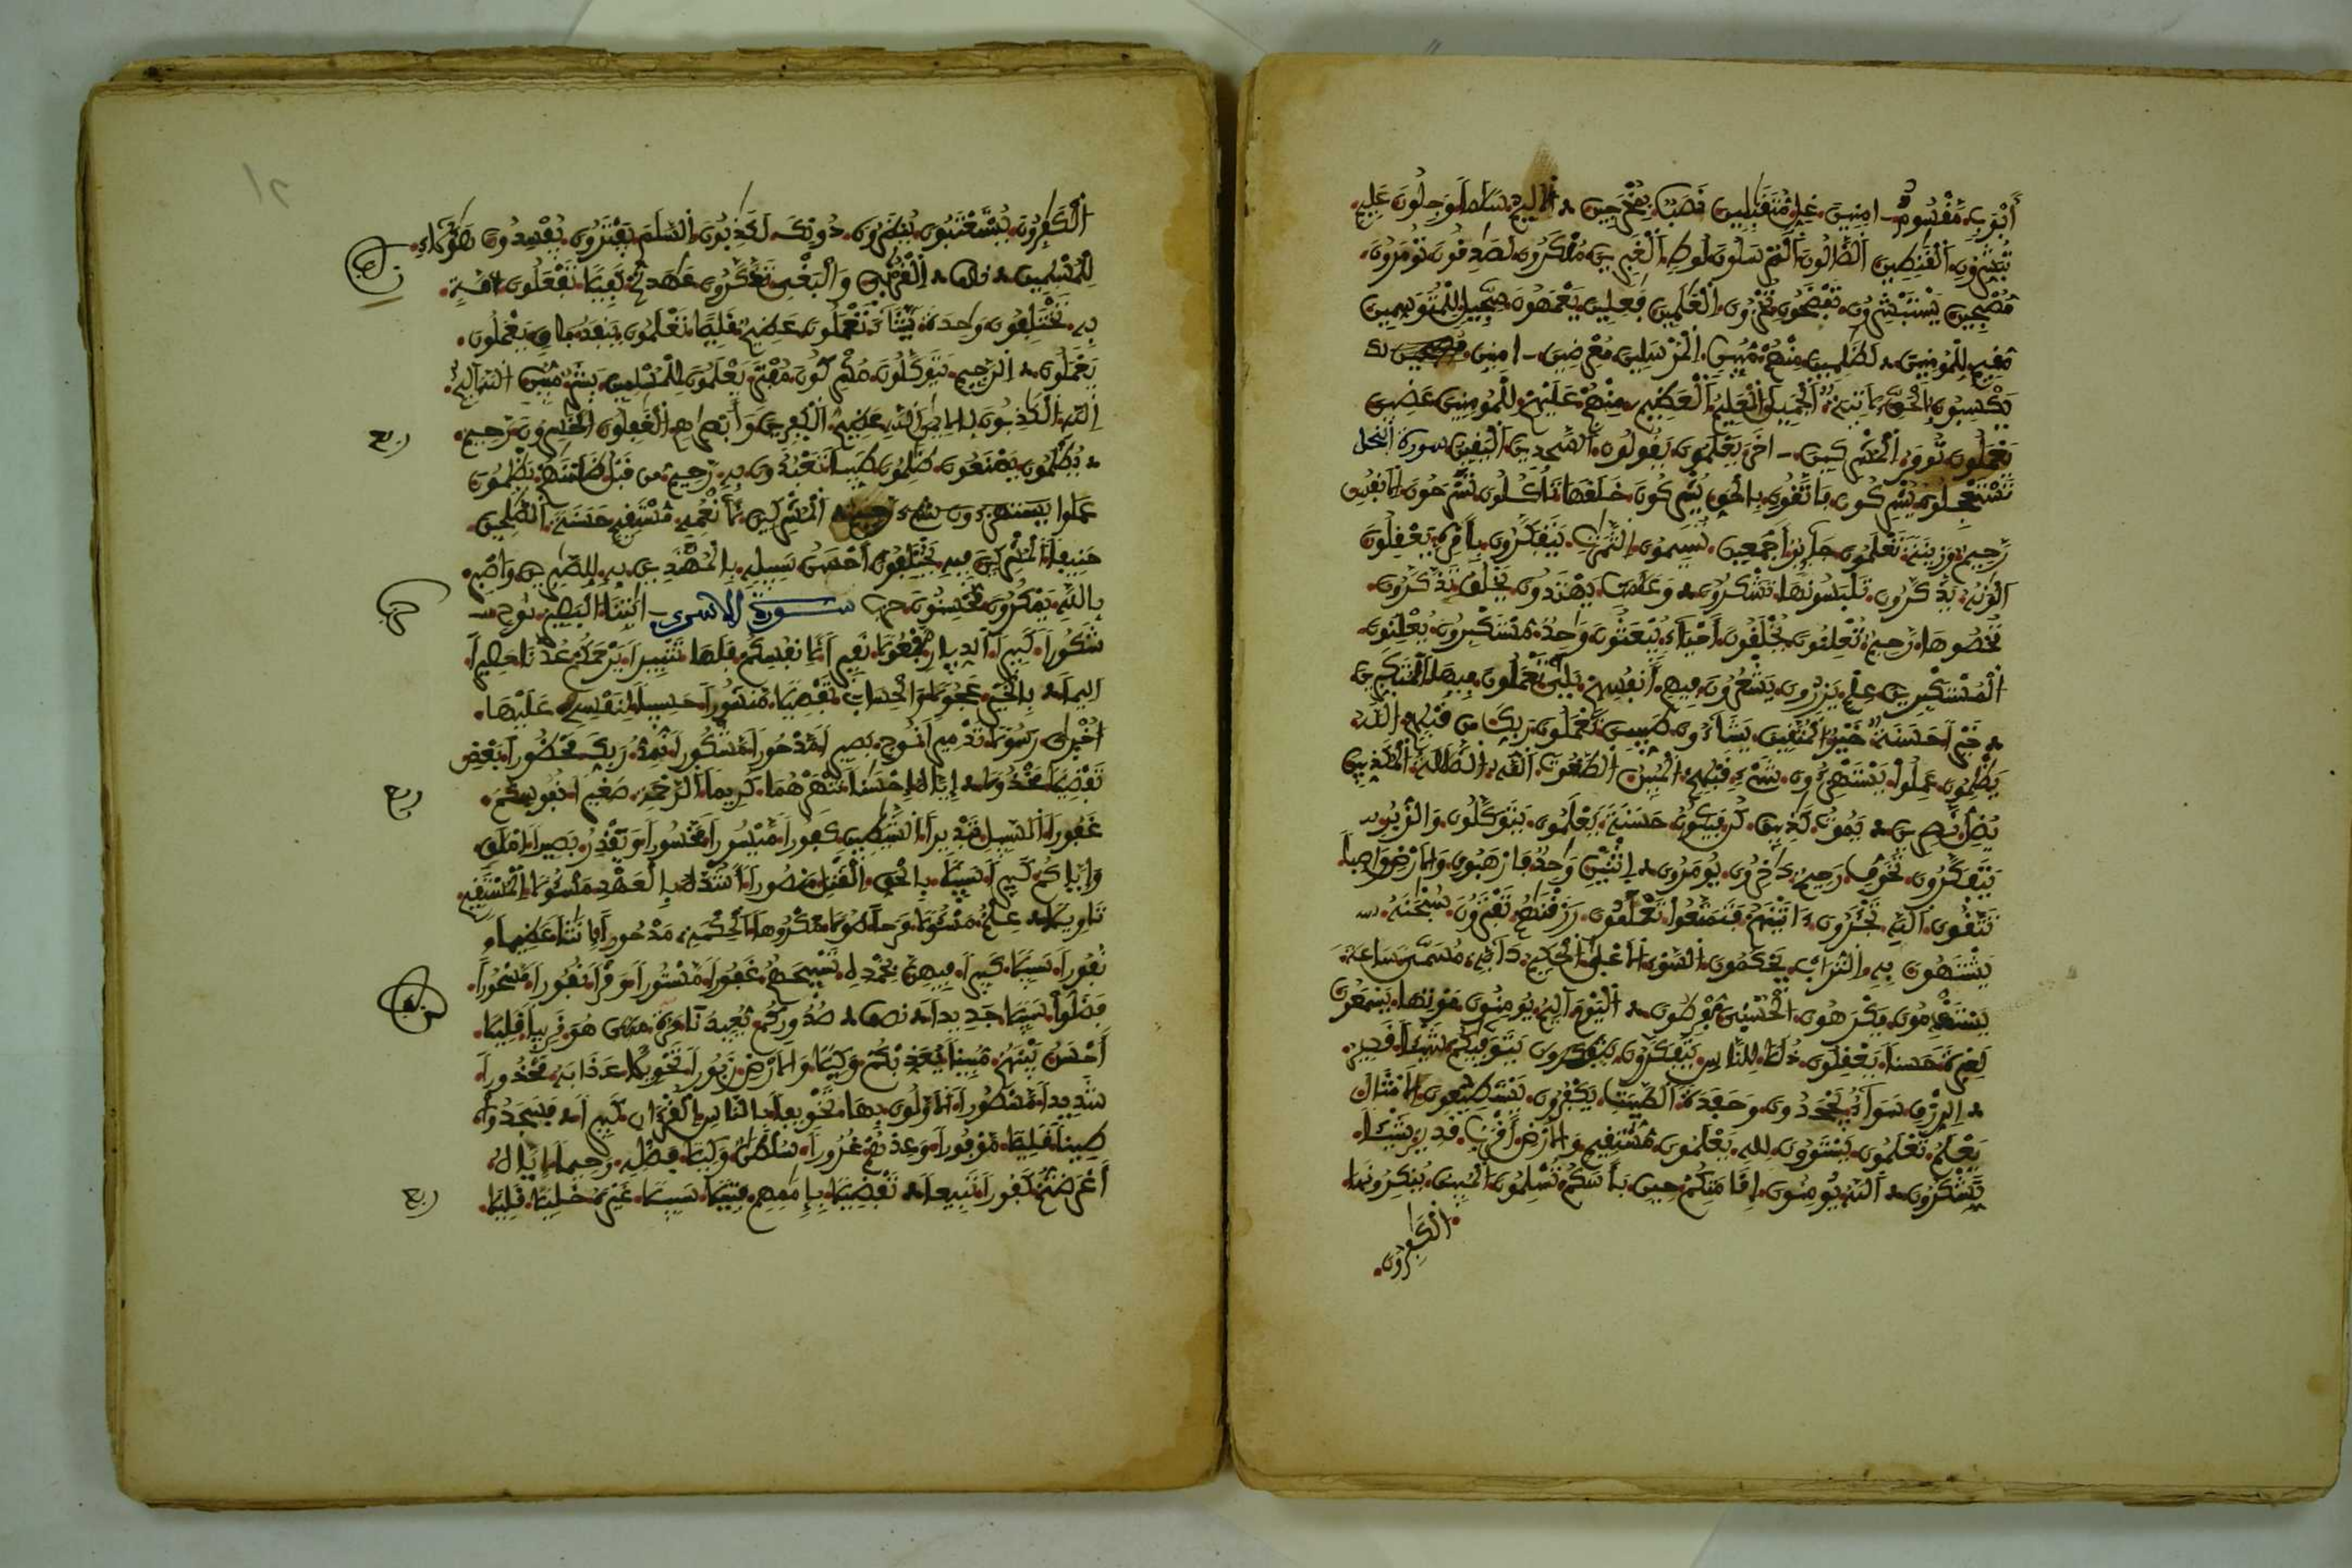 أبواب. مقسوم. امنين. غل. متقبلين. نصب. بمخرجين. الاليم. سلما. وجلون. عليم.
تبشرون. القنطين. الضالون. المرسلون. لوط. الغبرين. منكرون. لصدقون. تومرون.
مصبحين. يستبشرون. تفضحون. تخزون. العلمين. فعلين. يعمهون. سجيل. للمتوسمين
مقيم. للمومنين. لظلمين. منهم. مبين. المرسلين. معرضين. امنين.
يكسبون. بالحق. لاتية. الجميل. العليم. العظيم. منهم. عليهم. للمومنين. عضين
يعملون. تومر. المشركين. اخر. يعلمون. يقولون. السجدين. اليقين. سورة النحل
تستعجلوه. يشركون. فاتقون. بالحق. يشركون. خلقها. تاكلون. تسرحون. الانفس
رحيم. وزينة. تعلمون. جاير. أجمعين. تسيمون. الثمرت. يتفكرون. بأمره. يعقلون
الونه. يذكرون. تلبسونها. تشكرون. وعلمت. يهتدون. يخلق. تذكرون.
تحصوها. رحيم. تعلنون. يخلقون. أحياء. يبعثون. واحد. مستكبرون. يعلنون.
المستكبرين. علم. يزرون. يشعرون. فيهم. أنفسهم. بلى. تعملون. فيها. المتكبرين
خيرا. حسنة. خير. المتقين. يشاءون. طيبين. تعملون. ربك. من قبلهم. الله.
يظلمون. عملوا. يستهزءون. شيء. قبلهم. المبين. الطغوت. الله. الضللة. المكذبين
يضل. نصرين. يموت. كذبين. كن فيكون. حسنة. يعلمون. يتوكلون. والزبر.
يتفكرون. تخوف. رحيم. دخرون. يومرون. اثنين. واحد. فارهبون. والارض. واصبا
تتقون. الله. تجئرون. ءاتينهم. فتمتعوا. تعلمون. رزقنهم. تفترون. سبحنه.
يشتهون. به. التراب. يحكمون. السوء. الاعلى. الحكيم. دابة. مسمى. ساعة.
يستقدمون. يكرهون. الحسنى. مفرطون. اليوم. اليم. يومنون. موتها. يسمعون
لعبرة. حسنا. يعقلون. ذللا. للناس. يتفكرون. يتوفيكم. شيئا. قدير.
الرزق. سواء. يجحدون. وحفدة. الطيبت. يكفرون. يستطيعون. الامثال
يعلم. تعلمون. يستوون. لله. يعلمون. مستقيم. والارض. أقرب. قدير. شيئا.
تشكرون. الله. يومنون. اقامتكم. حين. بأسكم. تسلمون. المبين. ينكرونها.
الكفرون.
الكفرون. يستعتبون. ينظرون. دونك. لكذبون. السلم. يفترون. يفسدون. هؤلاء.
للمسلمين. القربى. والبغي. تذكرون. عهدتم. كفيلا. تفعلون. امة.
به. تختلفون. واحدة. يشاء. تعملون. عظيم. قليلا. تعلمون. ينفد. باق. يعملون.
يعملون. الرجيم. يتوكلون. مشركون. مفتر. يعلمون. للمسلمين. بشر. مبين. الله. اليم.
الله. الكذبون. بالايمن. الله. عظيم. الكفرين. وأبصرهم. الغفلون. الخسرون. رحيم.
ربع
يظلمون. يصنعون. ظلمون. طيبا. تعبدون. به. رحيم. من قبل. ظلمنهم. يظلمون
عملوا. يستهزءون. شيء. المشركين. لأنعمه. مستقيم. حسنة. الصلحين.
حنيفا. المشركين. فيه. يختلفون. أحسن. سبيله. بالمهتدين. به. للصبرين. واصبر.
بالله. يمكرون. محسنون. حزب سورة الاسرى. ايتنا. البصير. نوح.
حزب
شكورا. كبيرا. الديار. مفعولا. نفيرا. لأنفسكم. فلها. تتبيرا. يرحمكم. عدنا. حصيرا.
اليما. بالخير. عجولا. والحساب. تفصيلا. منشورا. حسيبا. لنفسه. عليها.
أخرى. رسولا. تدميرا. نوح. بصيرا. مدحورا. مشكورا. نمد. ربك. محظورا. بعض
تفضيلا. مخذولا. إياه. إحسنا. تنهرهما. كريما. الرحمة. صغيرا. نفوسكم.
ربع
غفورا. السبيل. تبذيرا. الشيطين. كفورا. ميسورا. محسورا. ويقدر. بصيرا. املق.
وإياكم. كبيرا. سبيلا. بالحق. القتل. منصورا. أشده. بالعهد. مسئولا. المستقيم.
تاويلا. علم. مسئولا. مرحا. طولا. مكروها. الحكمة. مدحورا. إنثا. عظيما
نفورا. سبيلا. كبيرا. فيهن. بحمده. تسبيحهم. غفورا. مستورا. وقرا. نفورا. مسحورا.
فضلوا. سبيلا. جديدا. نصف. صدوركم. يعيدنا. مرة. متى هو. قريبا. قليلا.
أحسن. بينهم. مبينا. يعذبكم. وكيلا. والارض. زبورا. تحويلا. عذابه. محذورا.
شديدا. مسطورا. الاولون. بها. تخويفا. بالناس. القرءان. كبيرا. فسجدوا.
طينا. قليلا. موفورا. وعدهم. غرورا. سلطن. وكيلا. فضله. رحيما. إياه.
أعرضتم. كفورا. تبيعا. تفضيلا. بإممهم. فتيلا. سبيلا. غيره. خليلا. قليلا.
ربع